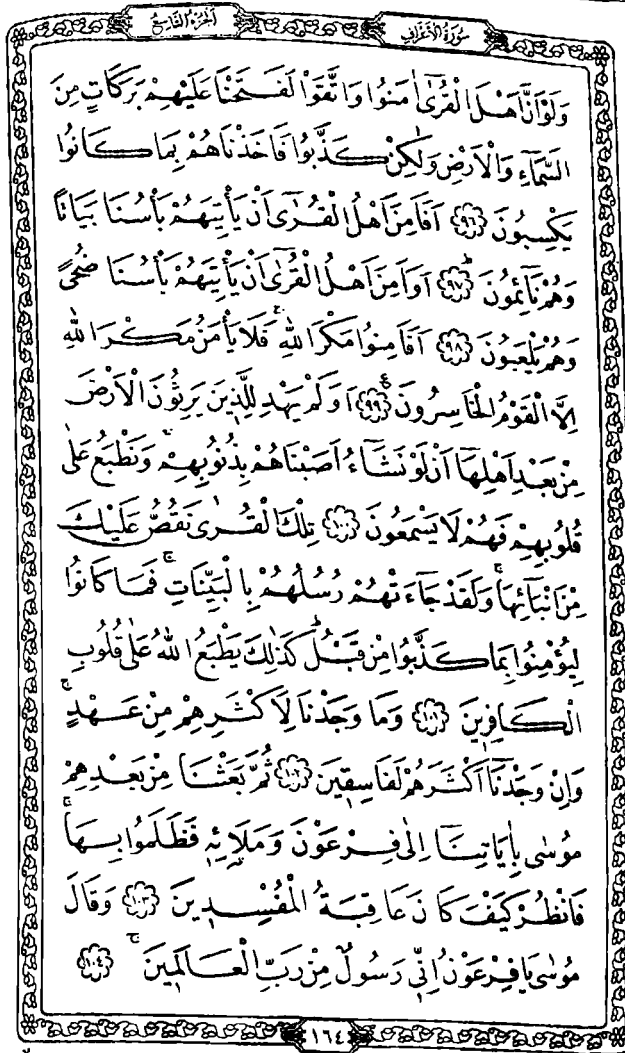 سُورَةُ الْاَعْرَافِ
اَلْجُزْءُ التَّاسِعُ
وَلَوْ اَنَّ اَهْلَ الْقُرٰٓى اٰمَنُوا وَاتَّقَوْا لَفَتَحْنَا عَلَيْهِمْ بَرَكَاتٍ مِنَ
السَّمَٓاءِ وَالْاَرْضِ وَلٰكِنْ كَذَّبُوا فَاَخَذْنَاهُمْ بِمَا كَانُوا
يَكْسِبُونَ ﴿٩٦﴾ اَفَاَمِنَ اَهْلُ الْقُرٰٓى اَنْ يَأْتِيَهُمْ بَأْسُنَا بَيَاتًا
وَهُمْ نَٓائِمُونَۜ ﴿٩٧﴾ اَوَاَمِنَ اَهْلُ الْقُرٰٓى اَنْ يَأْتِيَهُمْ بَأْسُنَا ضُحًى
وَهُمْ يَلْعَبُونَ ﴿٩٨﴾ اَفَاَمِنُوا مَكْرَ اللّٰهِۚ فَلَا يَأْمَنُ مَكْرَ اللّٰهِ
اِلَّا الْقَوْمُ الْخَاسِرُونَ۟ ﴿٩٩﴾ اَوَلَمْ يَهْدِ لِلَّذِينَ يَرِثُونَ الْاَرْضَ
مِنْ بَعْدِ اَهْلِهَٓا اَنْ لَوْ نَشَٓاءُ اَصَبْنَاهُمْ بِذُنُوبِهِمْۚ وَنَطْبَعُ عَلٰى
قُلُوبِهِمْ فَهُمْ لَا يَسْمَعُونَ ﴿١٠٠﴾ تِلْكَ الْقُرٰى نَقُصُّ عَلَيْكَ
مِنْ اَنْبَٓائِهَاۚ وَلَقَدْ جَٓاءَتْهُمْ رُسُلُهُمْ بِالْبَيِّنَاتِۚ فَمَا كَانُوا
لِيُؤْمِنُوا بِمَا كَذَّبُوا مِنْ قَبْلُۜ كَذٰلِكَ يَطْبَعُ اللّٰهُ عَلٰى قُلُوبِ
الْكَافِرِينَ ﴿١٠١﴾ وَمَا وَجَدْنَا لِاَكْثَرِهِمْ مِنْ عَهْدٍۚ
وَاِنْ وَجَدْنَٓا اَكْثَرَهُمْ لَفَاسِقِينَ ﴿١٠٢﴾ ثُمَّ بَعَثْنَا مِنْ بَعْدِهِمْ
مُوسٰى بِاٰيَاتِنَٓا اِلٰى فِرْعَوْنَ وَمَلَا۬ئِهِ فَظَلَمُوا بِهَاۚ
فَانْظُرْ كَيْفَ كَانَ عَاقِبَةُ الْمُفْسِدِينَ ﴿١٠٣﴾ وَقَالَ
مُوسٰى يَا فِرْعَوْنُ اِنِّي رَسُولٌ مِنْ رَبِّ الْعَالَمِينَۚ ﴿١٠٤﴾
١٦٤